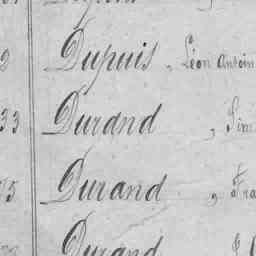 Dupuis, Léon Antoin
33 Durand, Sim
Durand, Fra
Durand